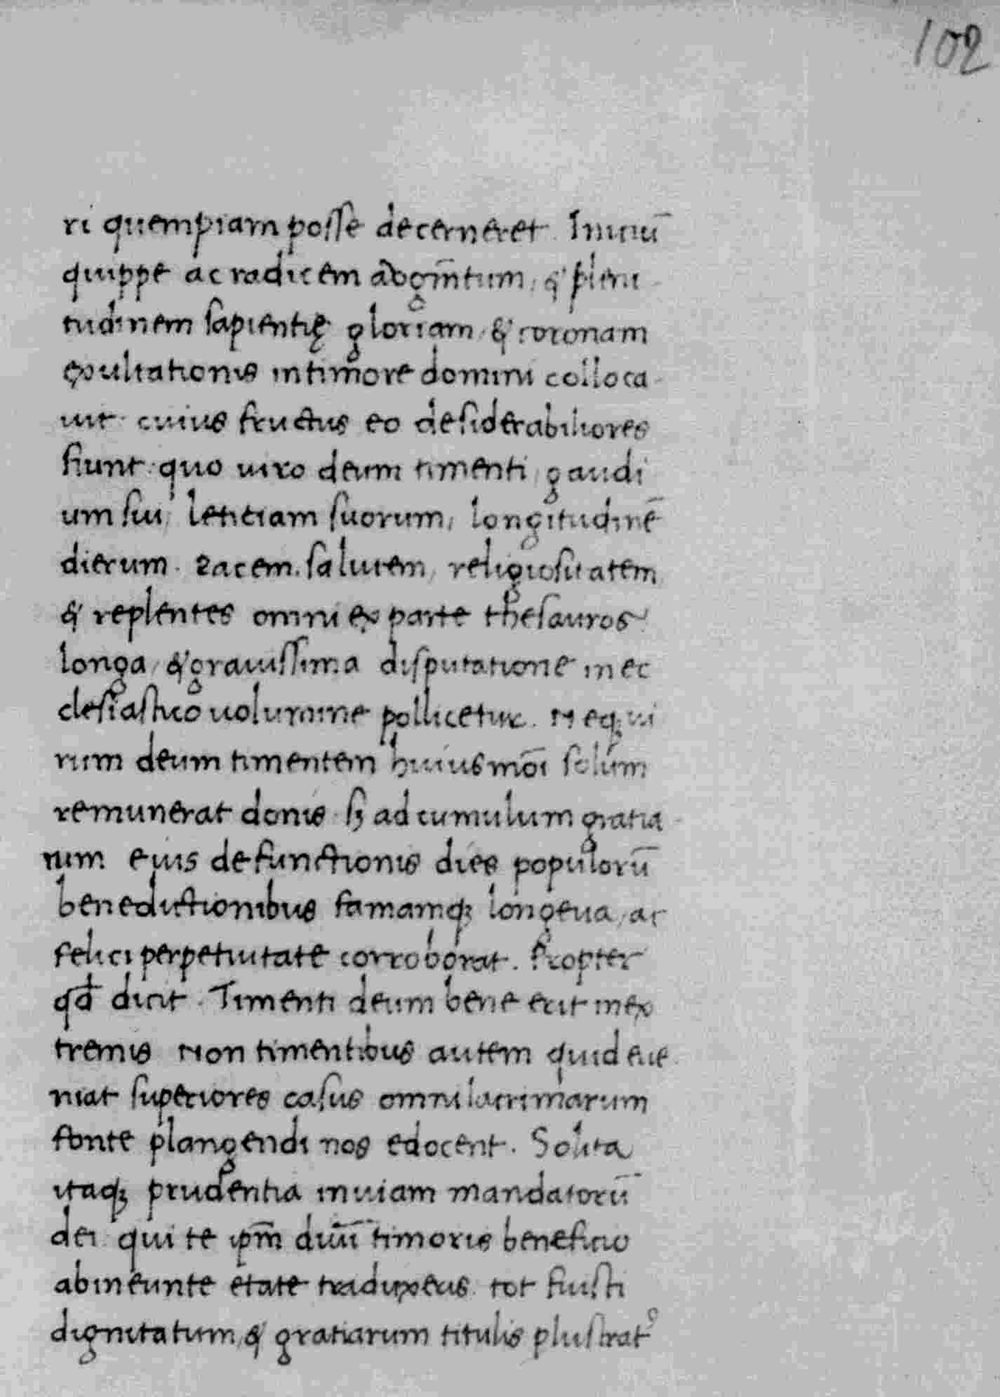 102
ri quempiam posse decerneret. Iniciū
quippe ac radicem ad &pleni
tudinem sapientię gloriam & coronam
exultationis intimore domini colloca
uit. cuius fructus eo desiderabiliores
fiunt. quo uiro deum timenti gaudi
um sui, letitiam suorum, longitudinē
dierum. Pacem. salutem, religiositatem
& replentes omni ex parte thesauros
longa, & grauissima disputatione in ec
clesiastico uolumine pollicetur. Neq; ui
rum deum timentem huiusmōi solum
remunerat donis sꝫ ad cumulum gratia
rum eius defunctionis dies populorū
benedictionibus famamqꝫ longeua, ac
felici perpetuitate corroborat. Propter
qđ dicit. Timenti deum bene erit inex
tremis Non timentibus autem quid eue
niat superiores casus omni lacrimarum
fonte plangendi nos edocent. Solita
itaqꝫ prudentia inuiam mandatorū
dei qui te ip̄m timoris beneficio
abineunte etate traduxeris tot fuisti
dignitatum, & gratiarum titulis